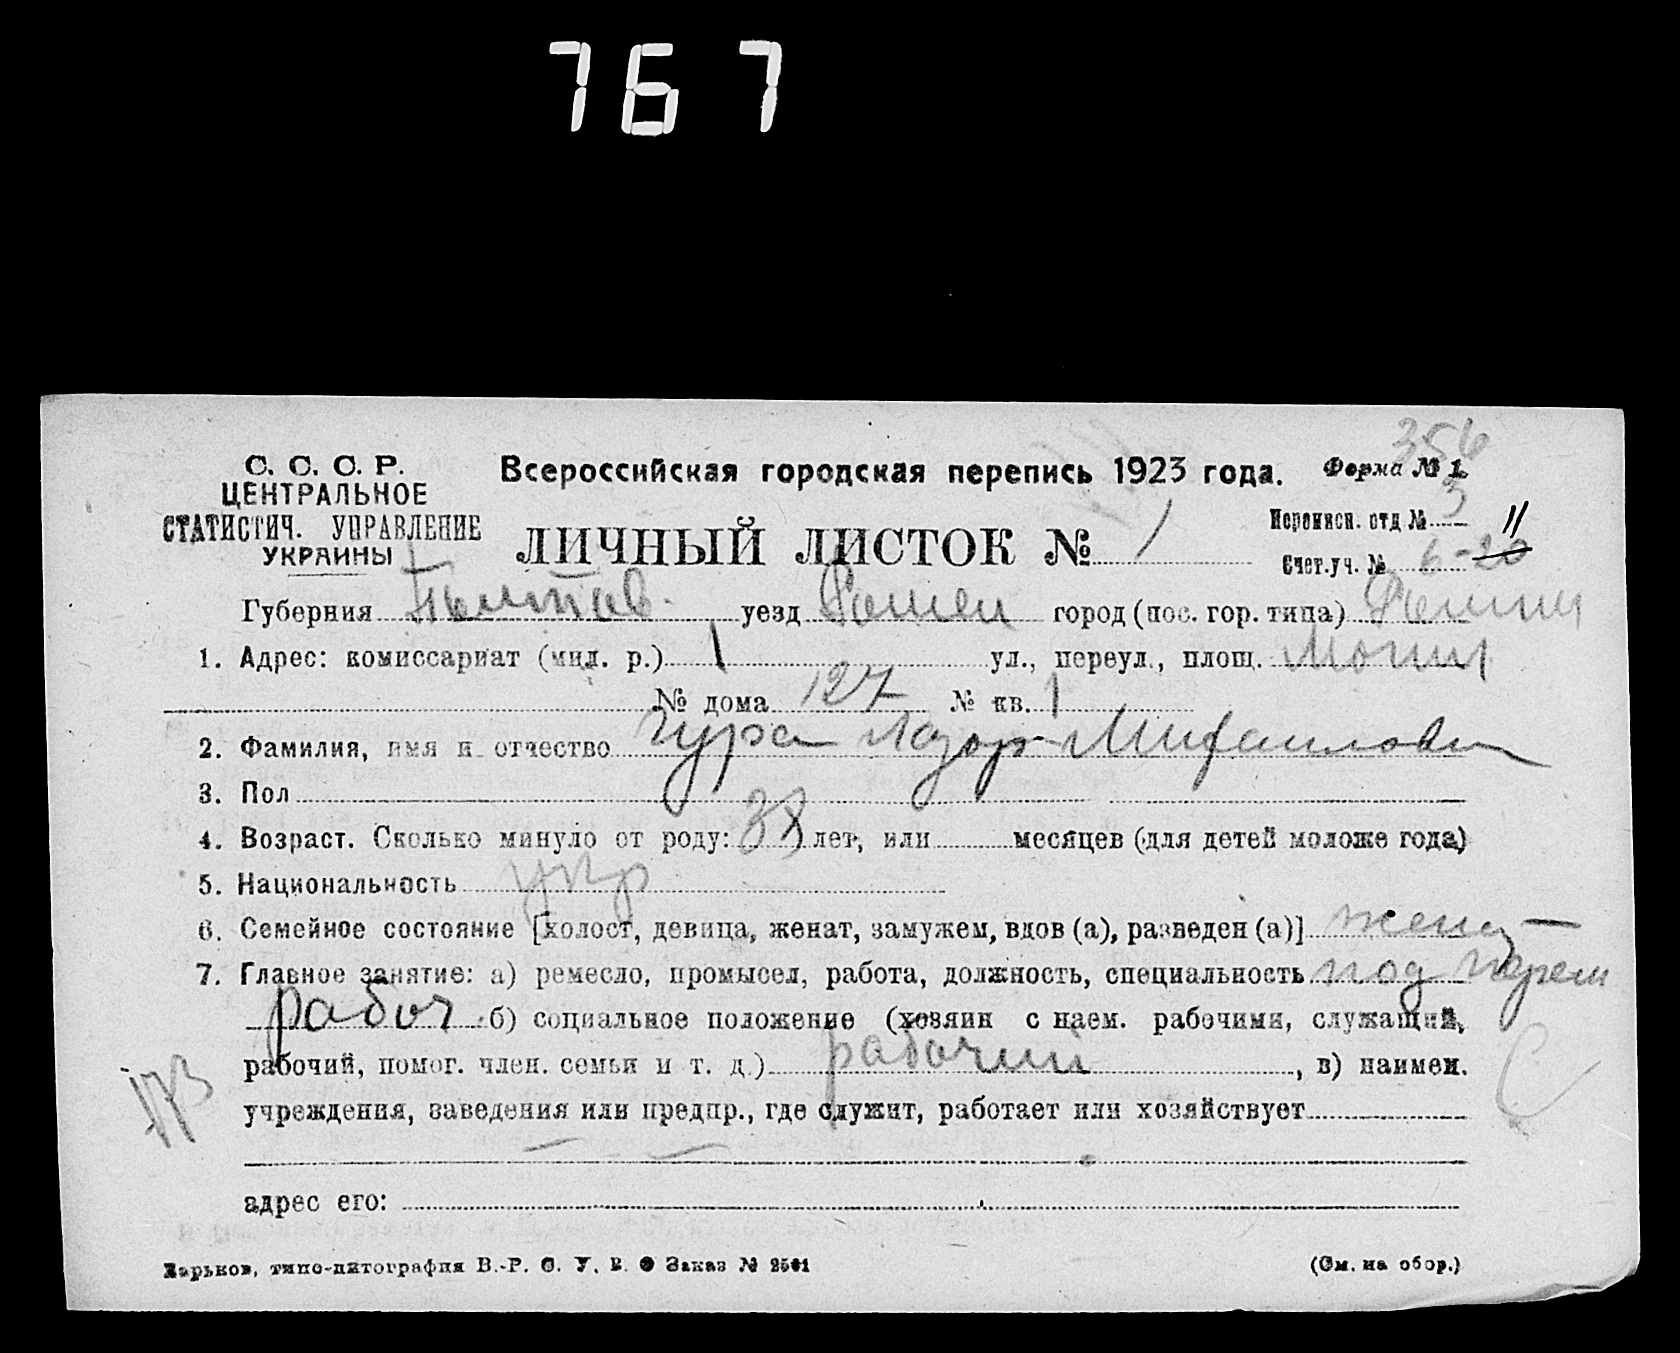 767
356
С. С. С. Р.
ЦЕНТРАЛЬНОЕ
СТАТИСТИЧ. УПРАВЛЕНИЕ
УКРАИНЫ
Всероссийская городская перепись 1923 года. Форма № 1.
ЛИЧНЫЙ ЛИСТОК № 1
Переписн. отд № 3
11
Счет.уч. № 6-20
Губерния Полтав. уезд Ромен город (пос. гор. типа) Ромны
1. Адрес: комиссариат (мил. р.) 1 ул., переул., площ.
№ дома 127 № кв. 1
2. Фамилия, имя и отчество Гура Лазор Михаилович
3. Пол
4. Возраст. Сколько минуло от роду: 38 лет, или месяцев (для детей моложе года)
5. Национальность укр
6. Семейное состояние [холост, девица, женат, замужем, вдов (а), разведен (а)] женат
7. Главное занятие: а) ремесло, промысел, работа, должность, специальность под
рабоч б) социальное положение (хозяин с наем. рабочими, служащий,
рабочий, помог. член. семьи и т. д.) рабочий, в) наимен.
учреждения, заведения или предпр., где служит, работает или хозяйствует
адрес его:
Харьков, типо-литография В.-Р. С. У. В. О Заказ № 2501
(См. на обор.)